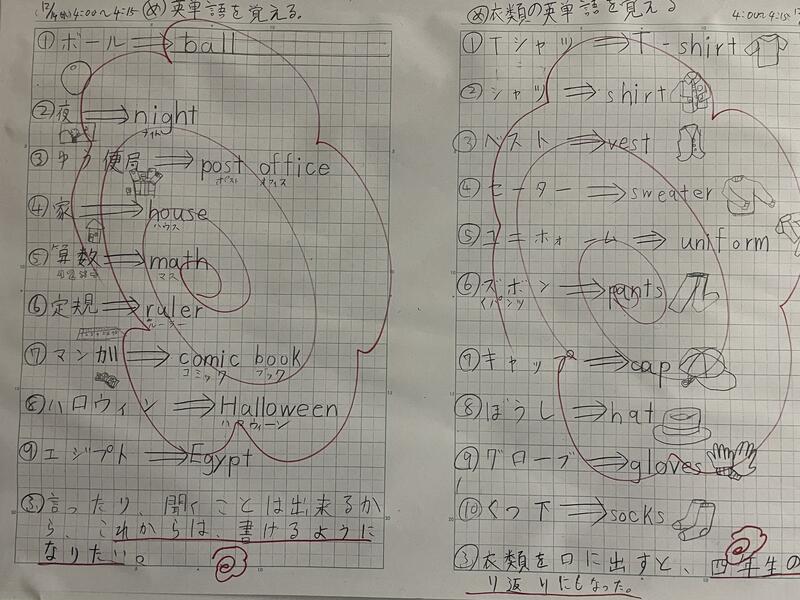 12/4(水)4:00〜4:15 め 英単語を覚える。
①ボール⇒ball
②夜⇒night
ナイト
③ゆう便局⇒post office
ポスト オフィス
④家⇒house
ハウス
⑤算数⇒math
マス
⑥定規⇒ruler
ルーラー
⑦マンガ⇒comic book
コミック ブック
⑧ハロウィン⇒Halloween
ハロウィーン
⑨エジプト⇒Egypt
③言ったり、聞くことは出来るか
ら、これからは、書けるように
なりたい。
め 衣類の英単語を覚える 4:00〜4:15
①Tシャツ⇒T-shirt
②シャツ⇒shirt
③ベスト⇒vest
④セーター⇒sweater
⑤ユニホォーム⇒uniform
⑥ズボン⇒pants
(パンツ
⑦キャップ⇒cap
⑧ぼうし⇒hat
⑨グローブ⇒gloves
⑩くつ下⇒socks
③衣類を口に出すと、四年生の
り返りにもなった。